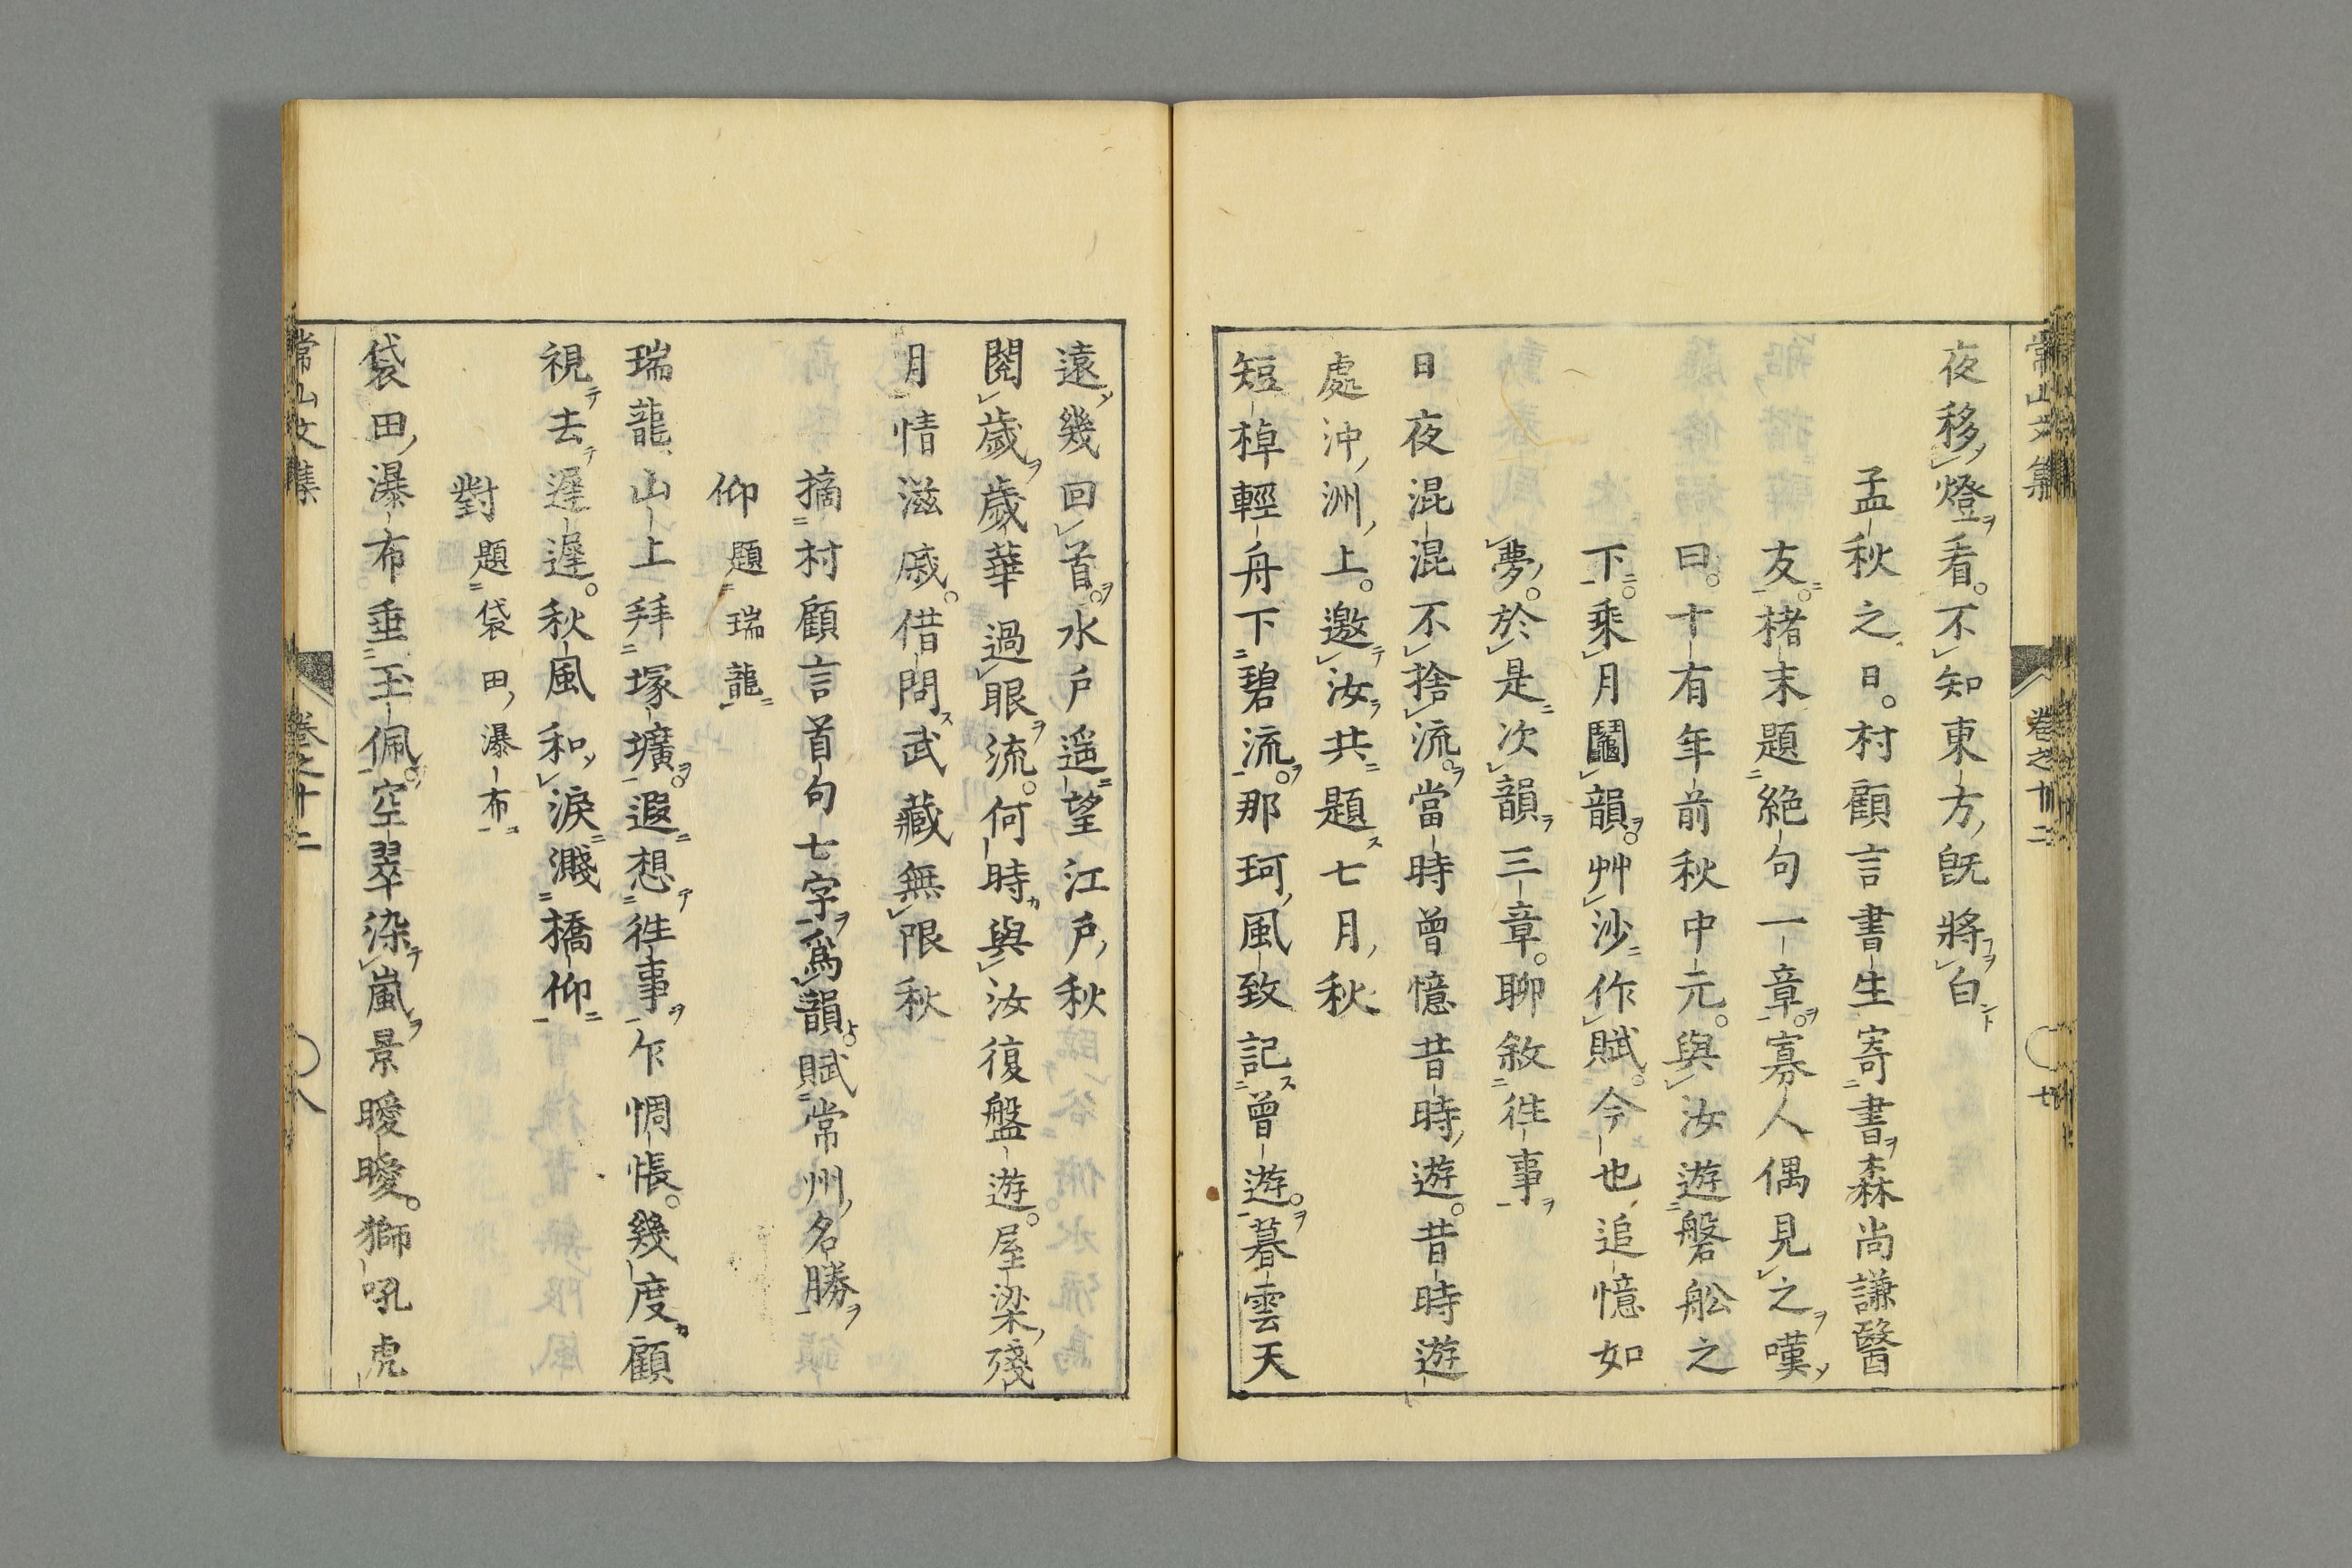 常山文集
卷之十二
七
夜移燈看不知東方旣將白
孟秋之日村顧言書生寄書森尚謙醫
友楮末題絕句一章寡人偶見之嘆
曰十有年前秋中元與汝遊磐舩之
下乘月鬮韻艸沙作賦今也追憶如
夢於是次韻三章聊敘徃事
日夜混混不捨流當時曾憶昔時遊昔時遊
處沖洲上邀汝共題七月秋
短棹輕舟下碧流那珂風致記曾遊暮雲天
遠幾回首水戶遥望江戶秋
閱歲歲華過眼流何時與汝復盤遊屋梁殘
月情滋戚借問武藏無限秋
摘村顧言首句七字爲韻賦常州名勝
仰題瑞龍
瑞龍山上拜塚壙遐想徃事乍惆悵幾度顧
視去遲遲秋風和淚濺橋仰
對題袋田瀑布
袋田瀑布垂玉佩空翠染嵐景曖曖獅吼虎
常山文集
卷之十二
八